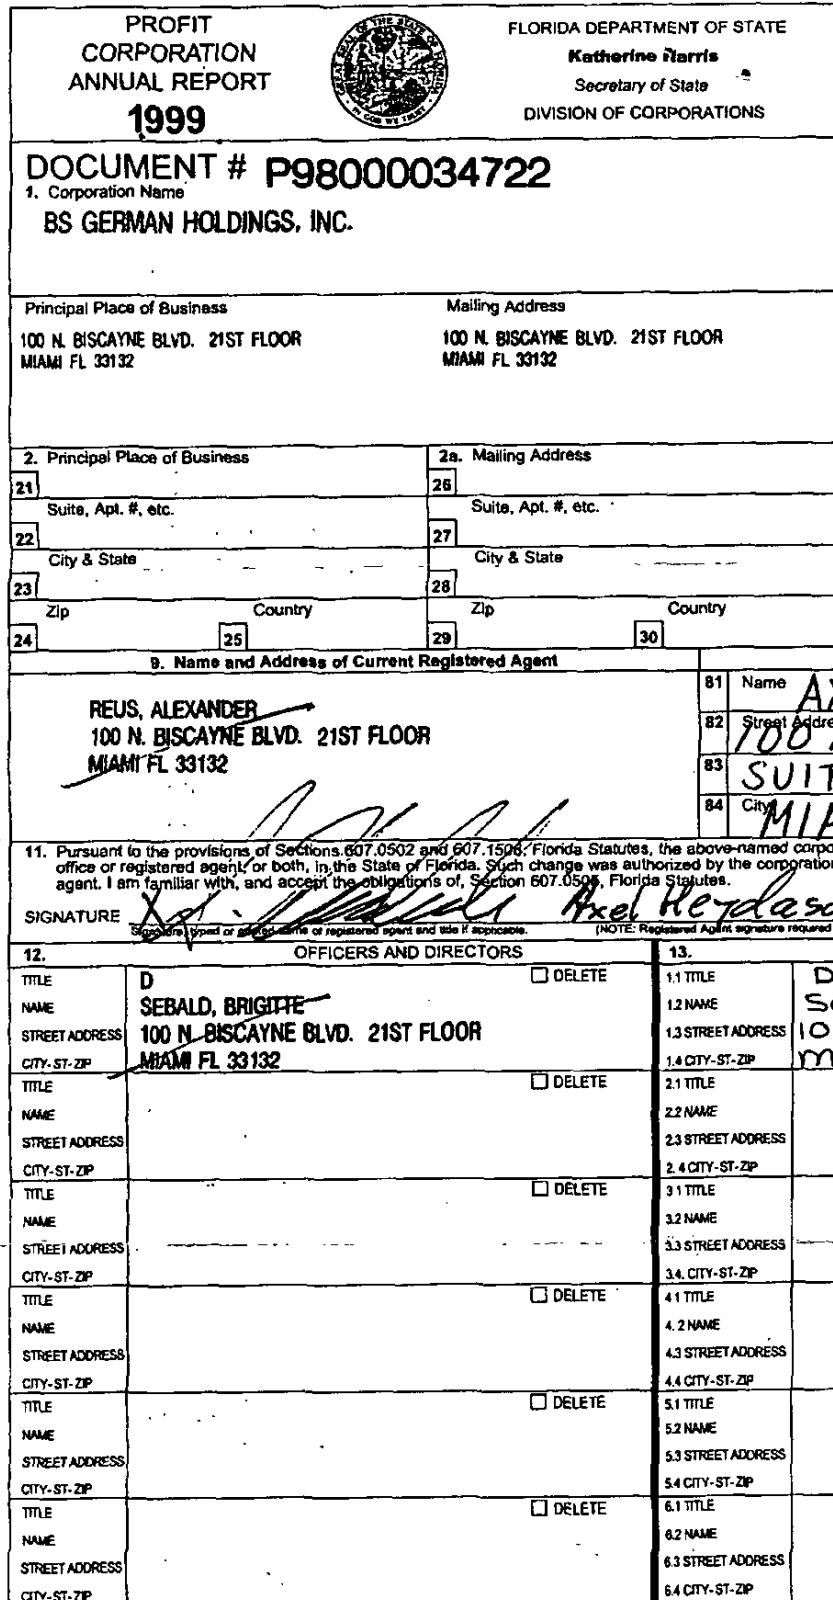 PROFIT
CORPORATION
ANNUAL REPORT
1999
GREAT SEAL OF THE STATE OF FLORIDA
IN GOD WE TRUST
FLORIDA DEPARTMENT OF STATE
Katherine Harris
Secretary of State
DIVISION OF CORPORATIONS
DOCUMENT # P98000034722
1. Corporation Name
BS GERMAN HOLDINGS, INC.
Principal Place of Business
100 N. BISCAYNE BLVD. 21ST FLOOR
MIAMI FL 33132
Mailing Address
100 N. BISCAYNE BLVD. 21ST FLOOR
MIAMI FL 33132
2. Principal Place of Business
21
Suite, Apt. #, etc.
22
City & State
23
Zip
24
Country
25
2a. Mailing Address
26
Suite, Apt. #, etc.
27
City & State
28
Zip
29
Country
30
9. Name and Address of Current Registered Agent
REUS, ALEXANDER
100 N. BISCAYNE BLVD. 21ST FLOOR
MIAMI FL 33132
81 Name
82 Street Addre
100
83 SUIT
84 City
MIA
11. Pursuant to the provisions of Sections 607.0502 and 607.1508, Florida Statutes, the above-named corpo
office or registered agent, or both, in the State of Florida. Such change was authorized by the corporation
agent. I am familiar with, and accept the obligations of, Section 607.0505, Florida Statutes.
SIGNATURE Axel Heydasc
Signature, typed or printed name of registered agent and title if applicable. (NOTE: Registered Agent signature required
12. OFFICERS AND DIRECTORS
TITLE D DELETE
NAME SEBALD, BRIGITTE
STREET ADDRESS 100 N. BISCAYNE BLVD. 21ST FLOOR
CITY-ST-ZIP MIAMI FL 33132
TITLE DELETE
NAME
STREET ADDRESS
CITY-ST-ZIP
TITLE DELETE
NAME
STREET ADDRESS
CITY-ST-ZIP
TITLE DELETE
NAME
STREET ADDRESS
CITY-ST-ZIP
TITLE DELETE
NAME
STREET ADDRESS
CITY-ST-ZIP
TITLE DELETE
NAME
STREET ADDRESS
CITY-ST-ZIP
13.
1.1 TITLE D
1.2 NAME
1.3 STREET ADDRESS 10
1.4 CITY-ST-ZIP m
2.1 TITLE
2.2 NAME
2.3 STREET ADDRESS
2.4 CITY-ST-ZIP
3.1 TITLE
3.2 NAME
3.3 STREET ADDRESS
3.4. CITY-ST-ZIP
4.1 TITLE
4.2 NAME
4.3 STREET ADDRESS
4.4 CITY-ST-ZIP
5.1 TITLE
5.2 NAME
5.3 STREET ADDRESS
5.4 CITY-ST-ZIP
6.1 TITLE
6.2 NAME
6.3 STREET ADDRESS
6.4 CITY-ST-ZIP